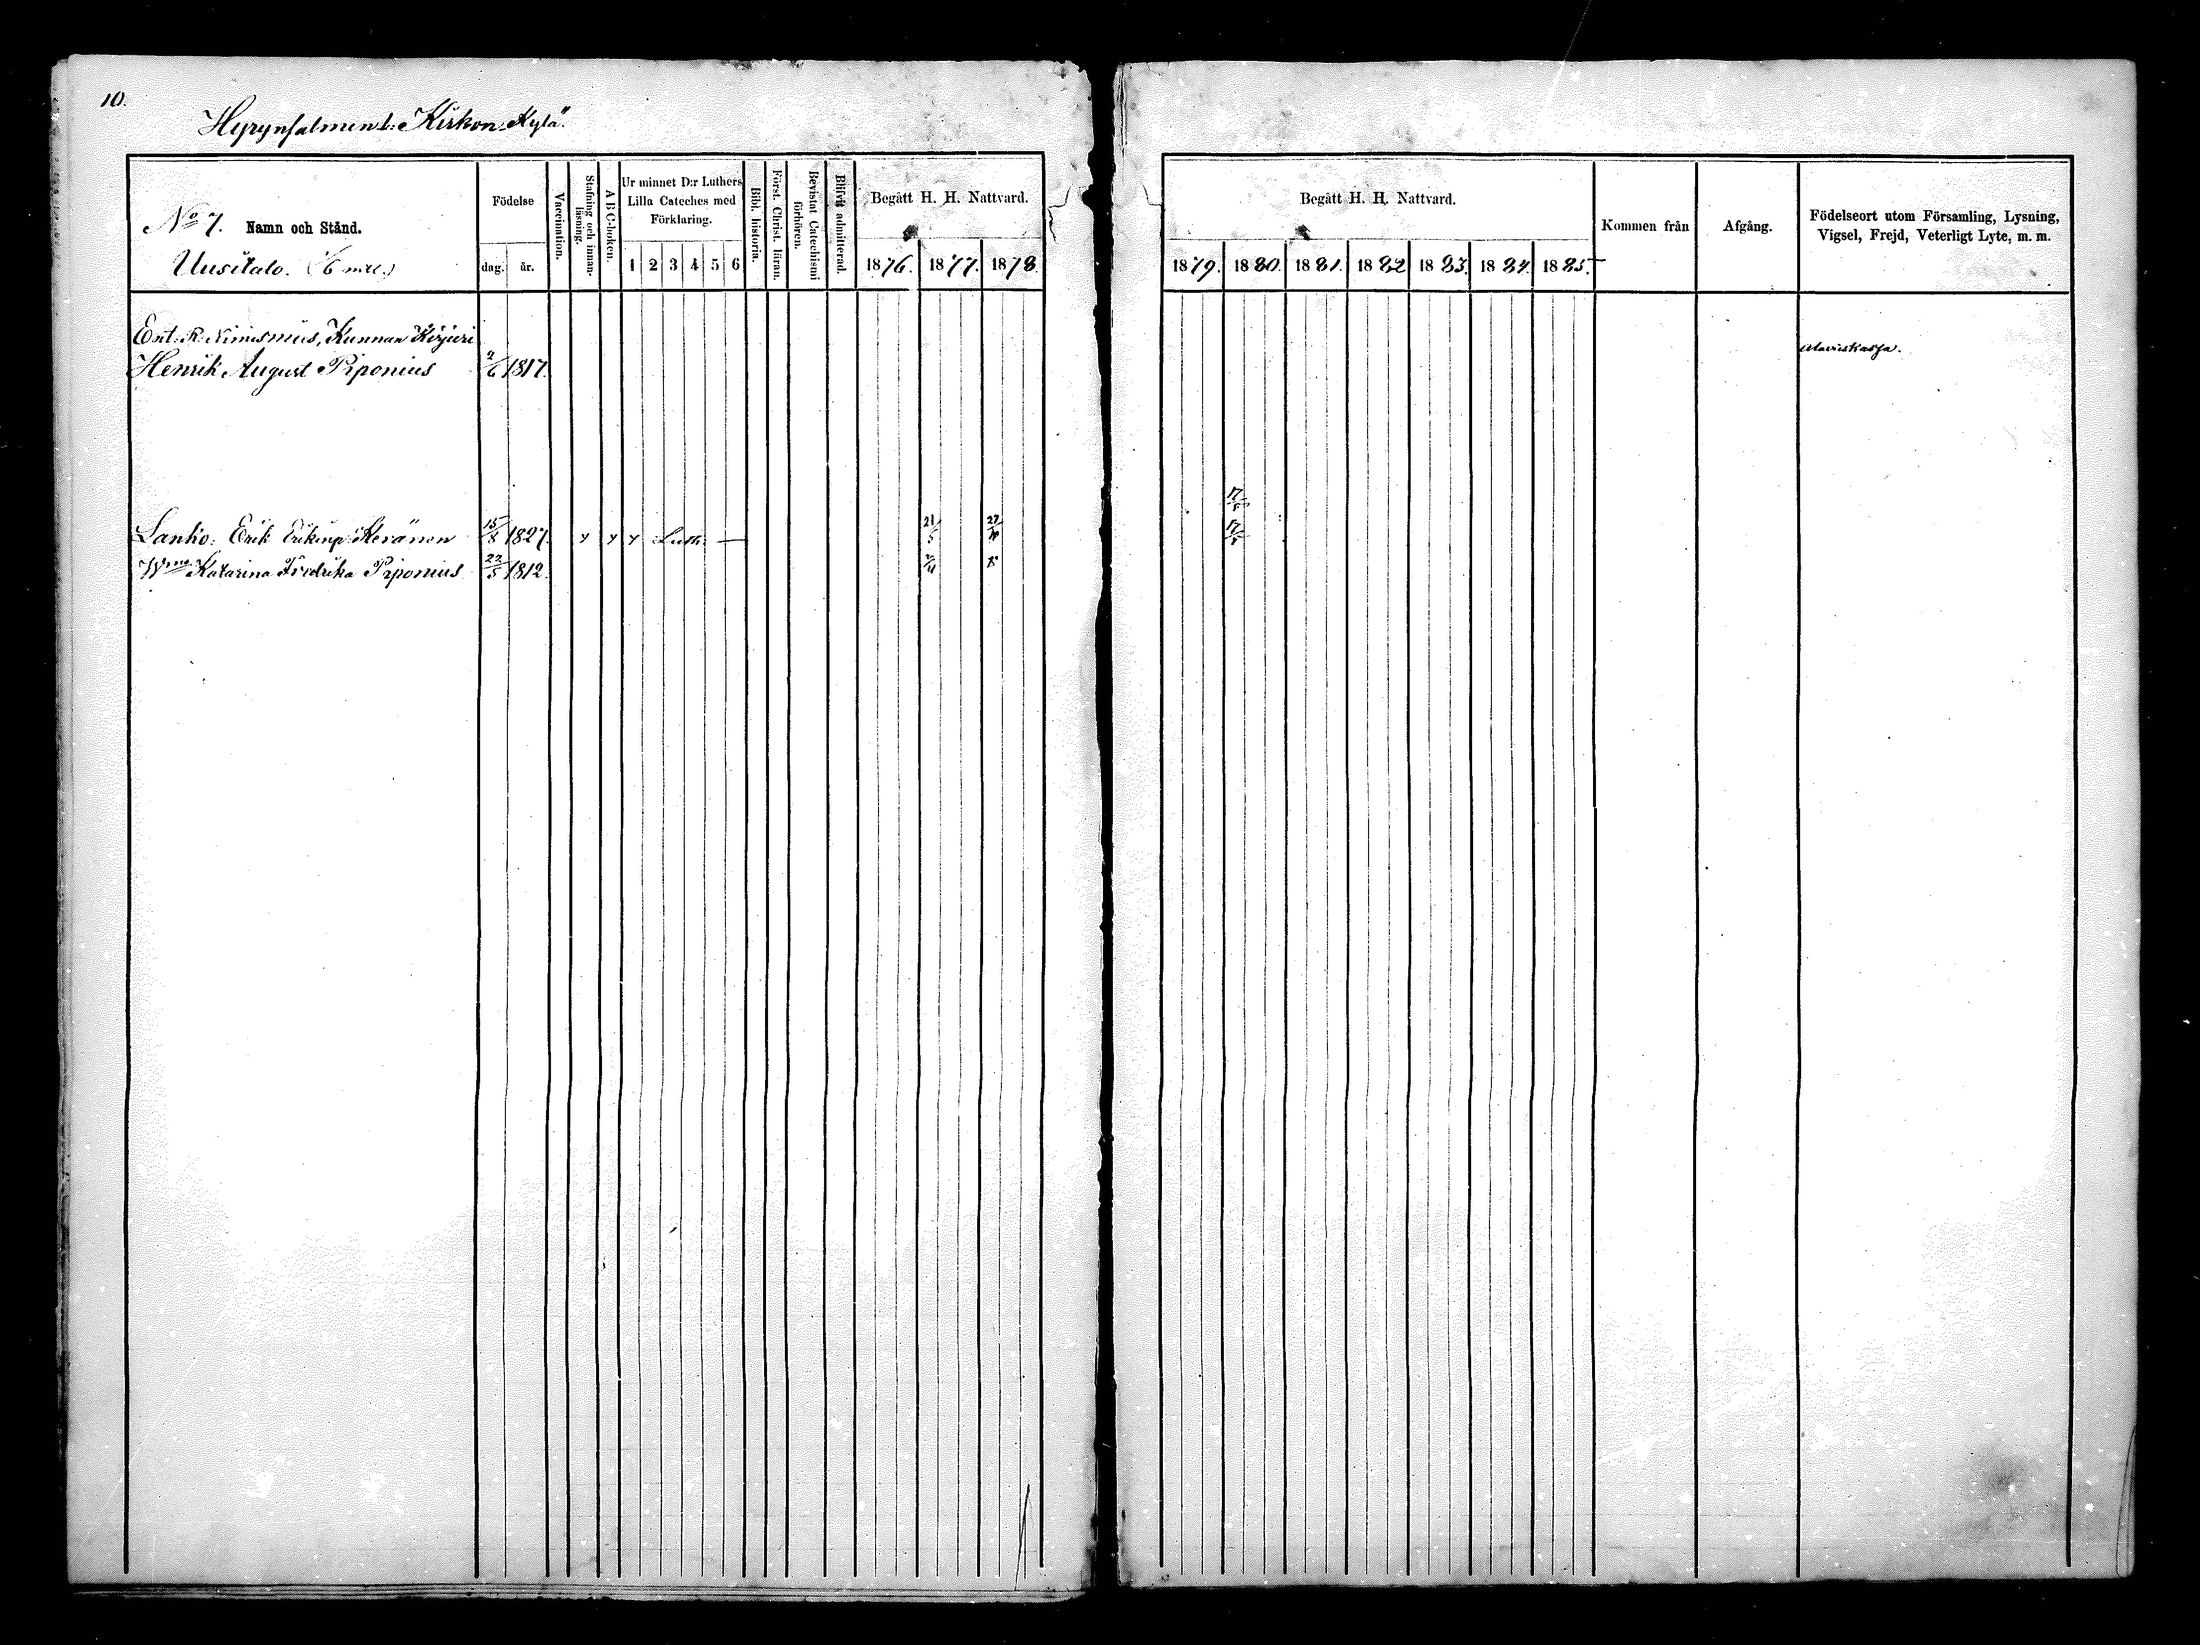 10.
Hyrynsalmen l: Kirkon Kylä.
No 7. Namn och Stånd.
Uusitalo.
Födelse
dag. år.
Vaccination.
Stafning och innanläsning.
A B C-boken.
Ur minnet D:r Luthers
Lilla Cateches med
Förklaring.
1 2 3 4 5 6
Bibl. historia.
Först. Christ. läran.
Bevistat Catechismi förhören.
Blifvit admitterad.
Begått H. H. Nattvard.
1876. 1877. 1878.
Begått H. H. Nattvard.
1879. 1880. 1881. 1882 1883. 1884. 1885.
Kommen från
Afgång.
Födelseort utom Församling, Lysning,
Vigsel, Frejd, Veterligt Lyte, m. m.
Ent. R. Nimismies, Kunnan Kirjuri
Henrik August Piponius 2/6 1817.
Alaviskasja.
17/5
Lanko: Erik Erikinp. Keränen 15/8 1827. Luth. 21/5 27/10 17/5
Wmo Katarina Fredrika Piponius 22/5 1812.